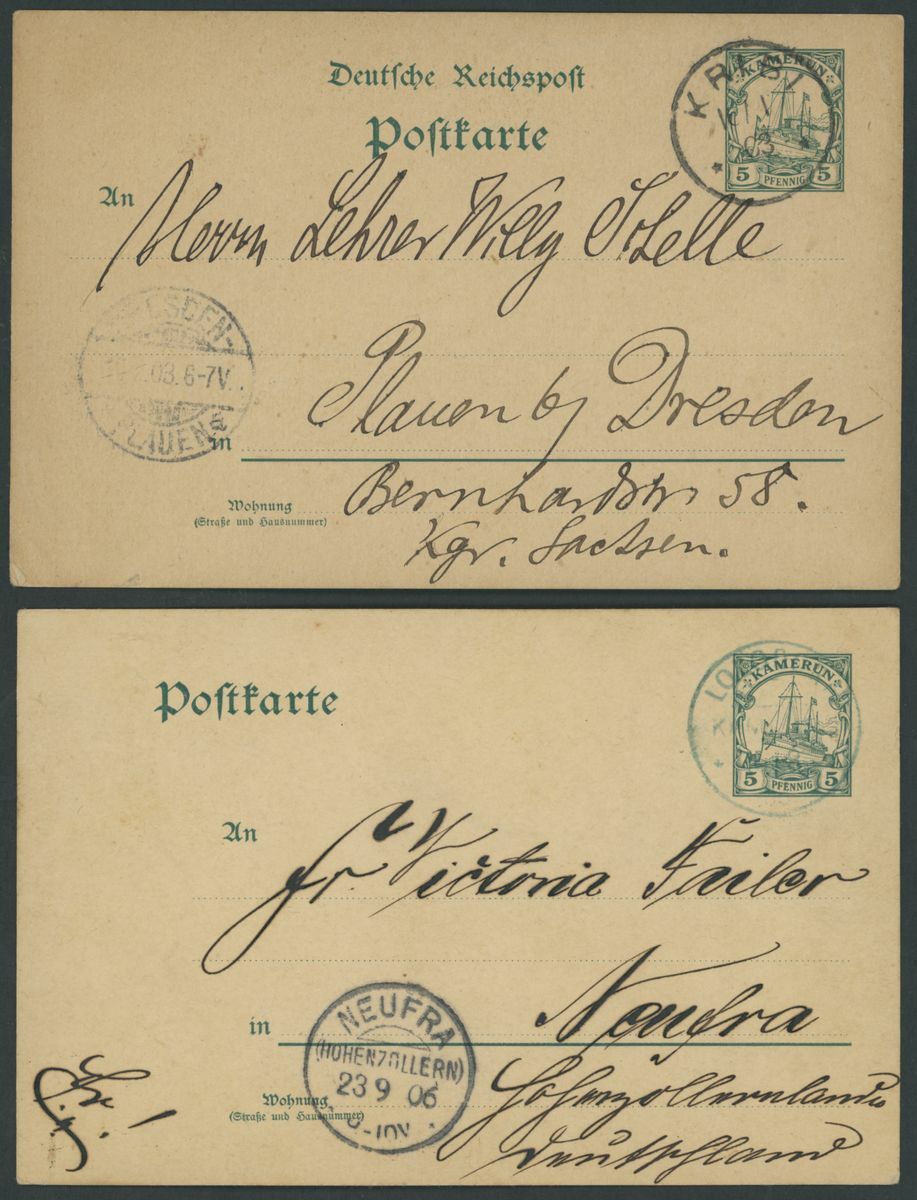 Deutsche Reichspost
Postkarte
KRIBI
03
KAMERUN
5 PFENNIG 5
An
Herrn Lehrer Willy
DRESDEN-
03.6-7V.
PLAUEN
in
Plauen b/ Dresden
Wohnung
(Straße und Hausnummer)
Bernhardstr. 58.
Kgr. Sachsen.
Postkarte
KAMERUN
5 PFENNIG 5
An
Fr. Victoria Failer
in
Neufra
NEUFRA
(HOHENZOLLERN)
23 9 06
-10V.
Wohnung
(Straße und Hausnummer)
Hohenzollernlande
Deutschland